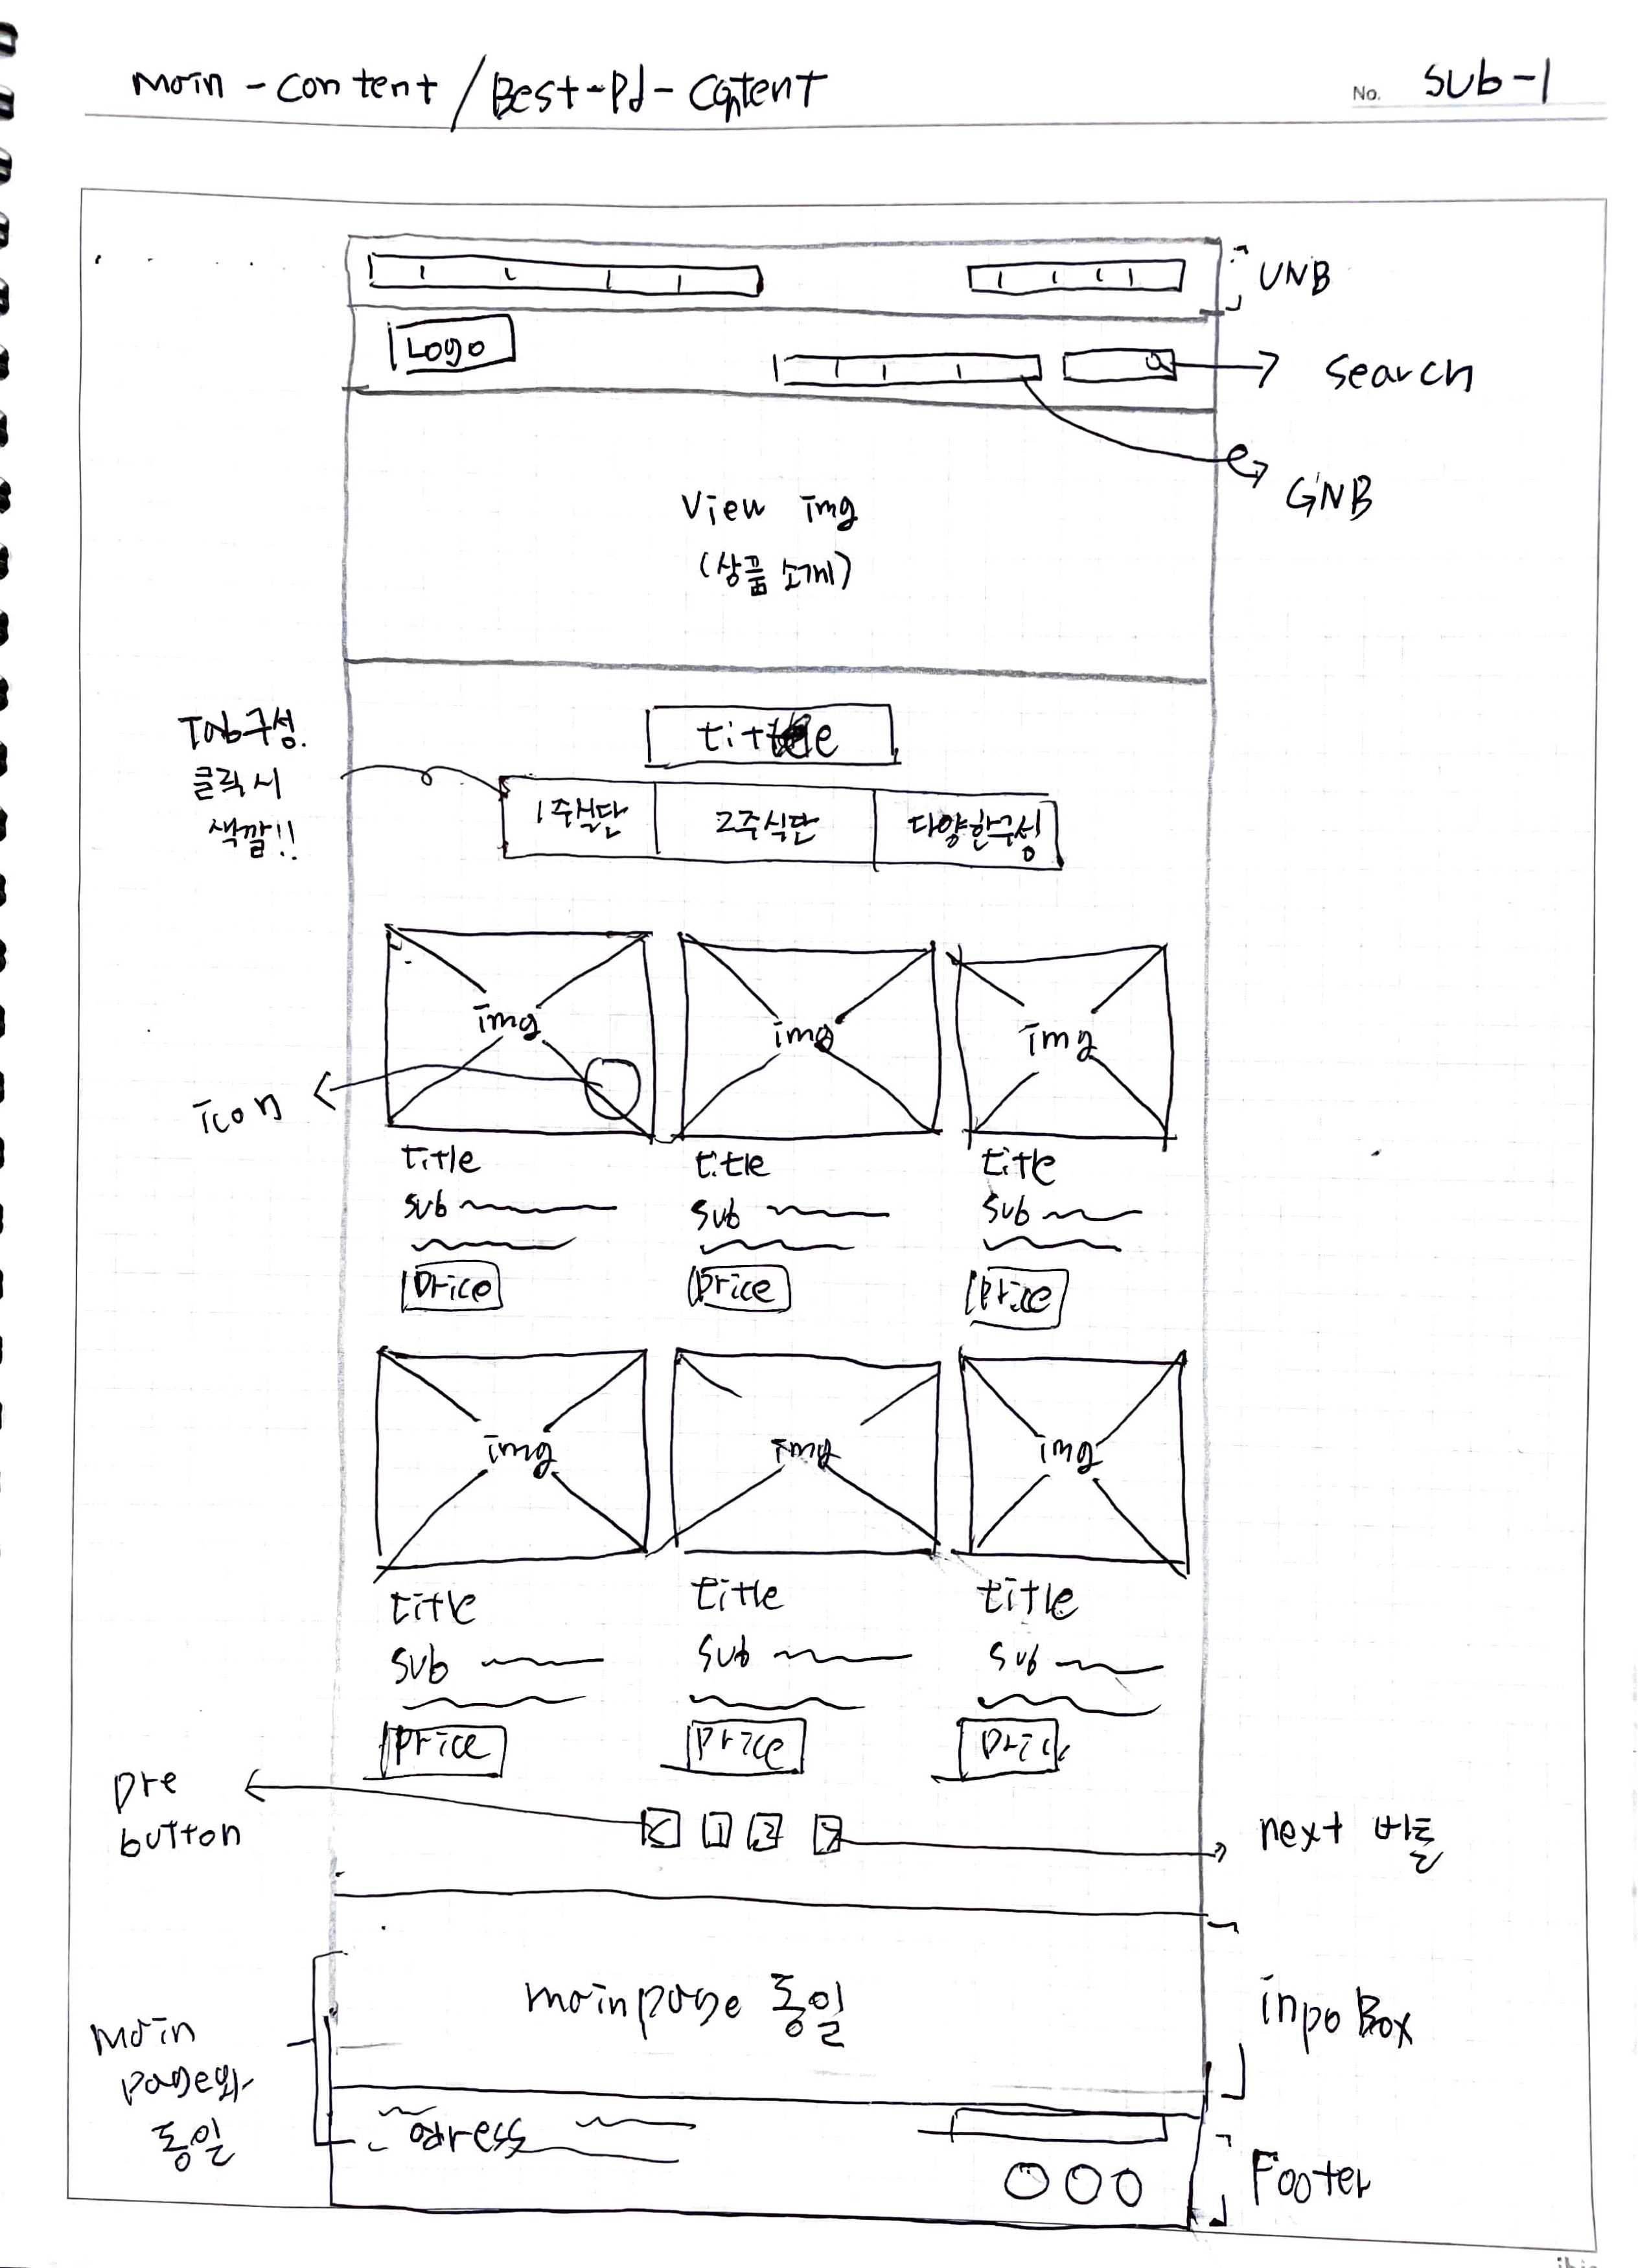 main-content/Best-Pd-Content
No. sub-1
UNB
Logo
search
GNB
View img
(상품 소개)
Tab구성.
클릭시
색깔!!
title
1주식단 2주식단 다양한구성
img img img
icon
title title title
sub sub sub
price price price
img img img
title title title
sub sub sub
price price price
pre
button
< 1 2 >
next 버튼
mainpage 동일
inpo Box
main
page와
동일
adress
Footer